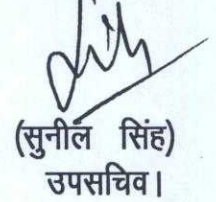 (सुनील सिंह)
उपसचिव।